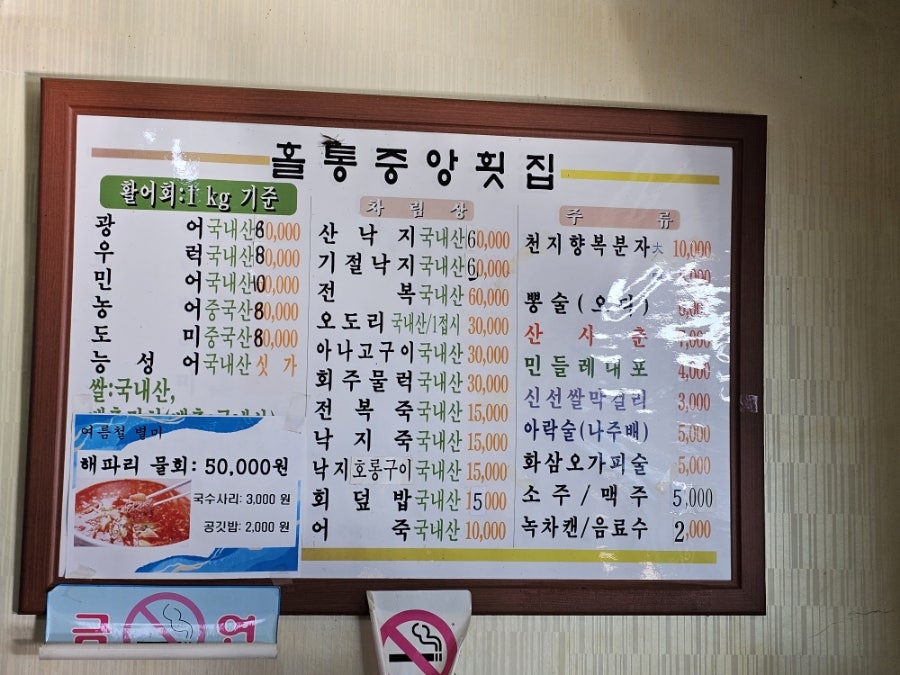 홀통중앙횟집
활어회:1 kg 기준
광 어 국내산 80,000
우 럭 국내산 80,000
민 어 국내산
농 어 중국산 80,000
도 미 중국산 80,000
능 성 어 국내산 싯 가
쌀:국내산,
여름철 별미
해파리 물회: 50,000원
국수사리: 3,000 원
공깃밥: 2,000 원
차 림 상
산 낙 지 국내산 60,000
기절낙지 국내산 60,000
전 복 국내산 60,000
오도리 국내산/1접시 30,000
아나고구이 국내산 30,000
회주물럭 국내산 30,000
전 복 죽 국내산 15,000
낙 지 죽 국내산 15,000
낙지호롱구이 국내산 15,000
회 덮 밥 국내산 15000
어 죽 국내산 10,000
주 류
천지향복분자大 10,000
뽕술(오디)
산 사 춘 7,000
민들레대포 4,000
신선쌀막걸리 3,000
아락술(나주배) 5,000
화삼오가피술 5,000
소 주 / 맥 주 5,000
녹차캔/음료수 2,000
금 연